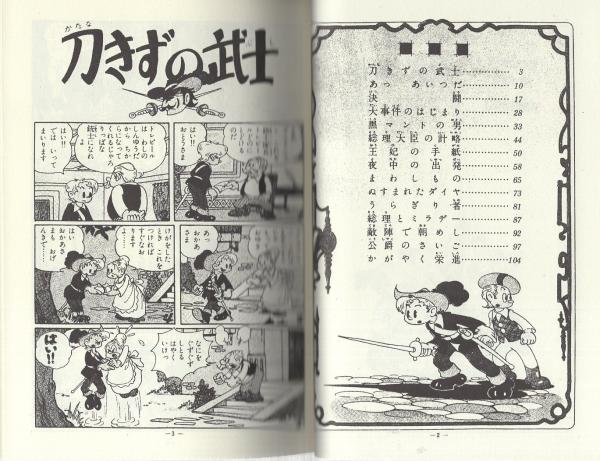 ■■■
刀きずの武士 3
あっ あいつだ 10
決闘 17
大事件のはじまり 28
黒マントの男 33
総理大臣の計略 44
王妃の手紙 50
夜中の出発 58
まわしもの 65
ぬすまれたダイヤ 73
うらぎり者 81
総理とミラデー 87
敵陣で朝めし 92
公爵のさいご 97
かがやく栄進 104
—2—
かたな
刀きずの武士
はい!!
おとうさま
トレビール
はわしの
しんゆうだ
からちか
らになって
くれるじゃろ
りっぱな
銃士になれ
よ
はい…
では
いって
まいります
あっ
おかあ
さま
けがをした
とき これを
つければ
すぐなお
るよ……
はい
おかあさ
まも おげ
んきで…
なにを
ぐずぐず
しとる
はやく
いけっ
はい!!
—3—